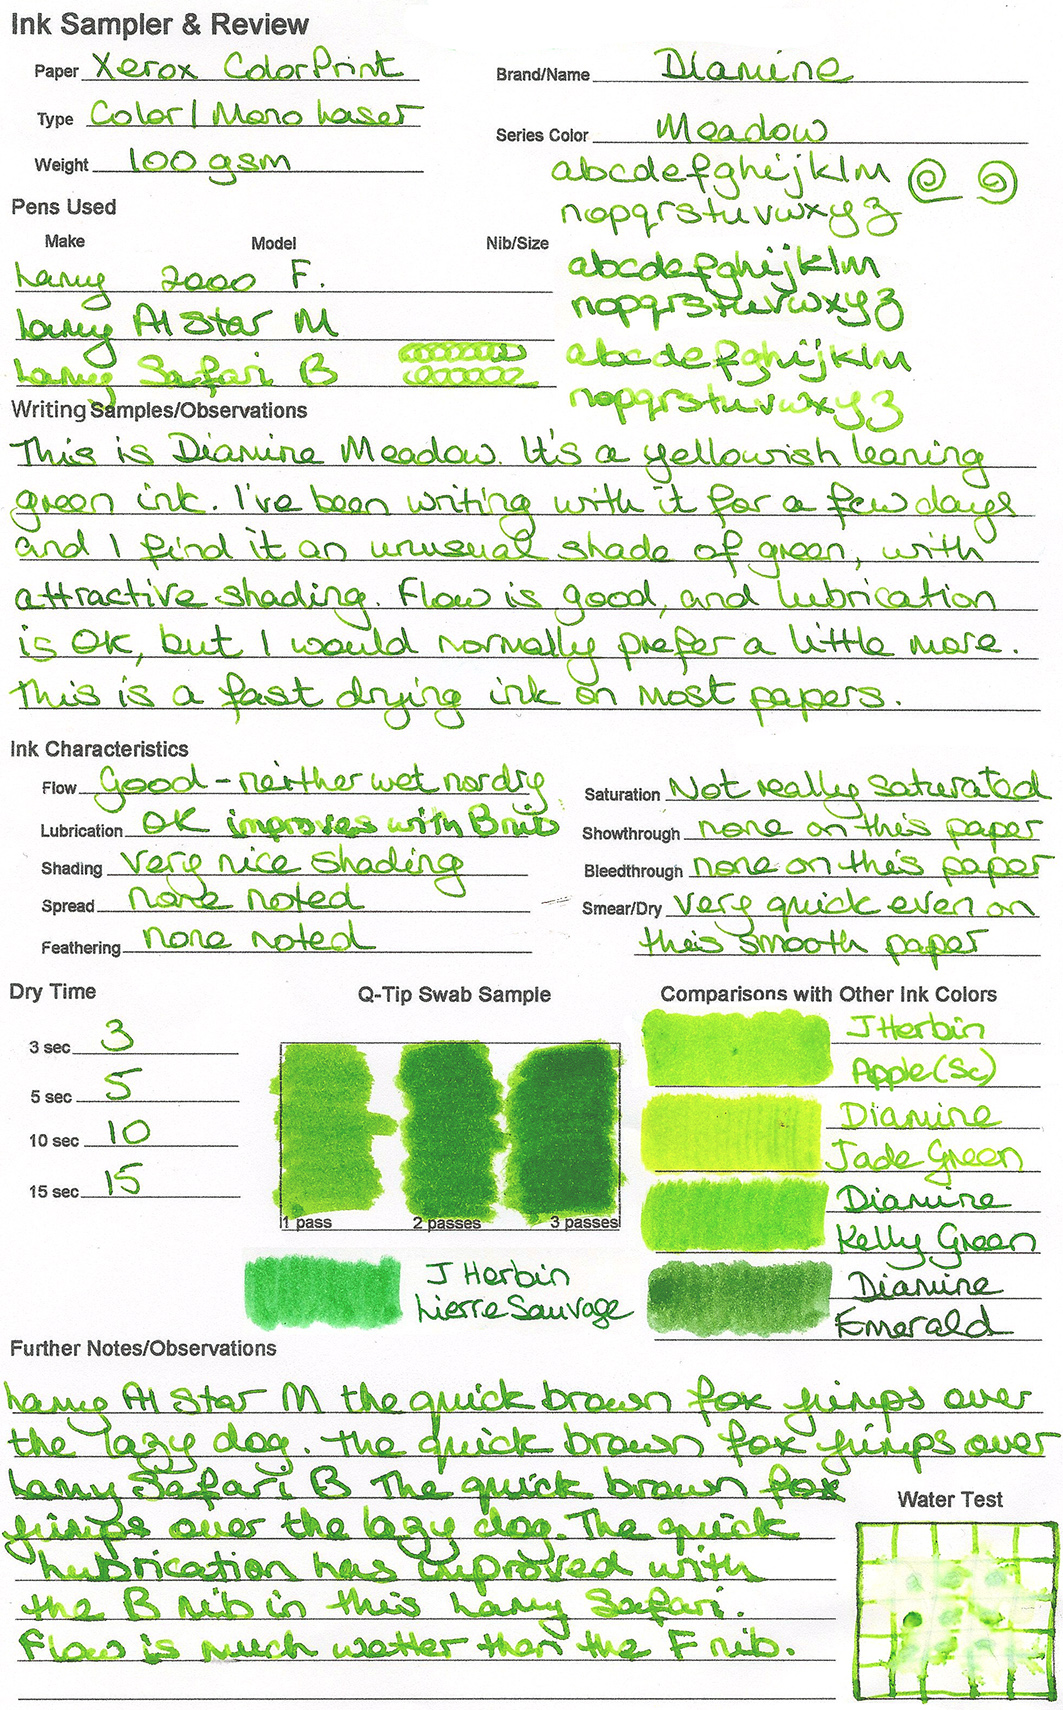 Ink Sampler & Review
Paper Xerox ColorPrint
Type Color/Mono Laser
Weight 100 gsm
Brand/Name Diamine
Series Color Meadow
abcdefghijklm
nopqrstuvwxyz
abcdefghijklm
nopqrstuvwxyz
abcdefghijklm
nopqrstuvwxyz
Pens Used
Make Model Nib/Size
Lamy 2000 F.
Lamy Al Star M
Lamy Safari B
Writing Samples/Observations
This is Diamine Meadow. It's a yellowish leaning
green ink. I've been writing with it for a few days
and I find it an unusual shade of green, with
attractive shading. Flow is good, and lubrication
is OK, but I would normally prefer a little more.
This is a fast drying ink on most papers.
Ink Characteristics
Flow Good - neither wet nor dry
Lubrication OK improves with B nib
Shading very nice shading
Spread none noted
Feathering none noted
Saturation Not really saturated
Showthrough none on this paper
Bleedthrough none on this paper
Smear/Dry very quick even on
this smooth paper
Dry Time
3 sec 3
5 sec 5
10 sec 10
15 sec 15
Q-Tip Swab Sample
1 pass 2 passes 3 passes
J Herbin
Lierre Sauvage
Comparisons with Other Ink Colors
J Herbin
Apple (Sc)
Diamine
Jade Green
Diamine
Kelly Green
Diamine
Emerald
Further Notes/Observations
Lamy Al Star M the quick brown fox jumps over
the lazy dog. The quick brown fox jumps over
Lamy Safari B The quick brown fox
jumps over the lazy dog. The quick
Lubrication has improved with
the B nib in this Lamy Safari.
Flow is much wetter than the F nib.
Water Test